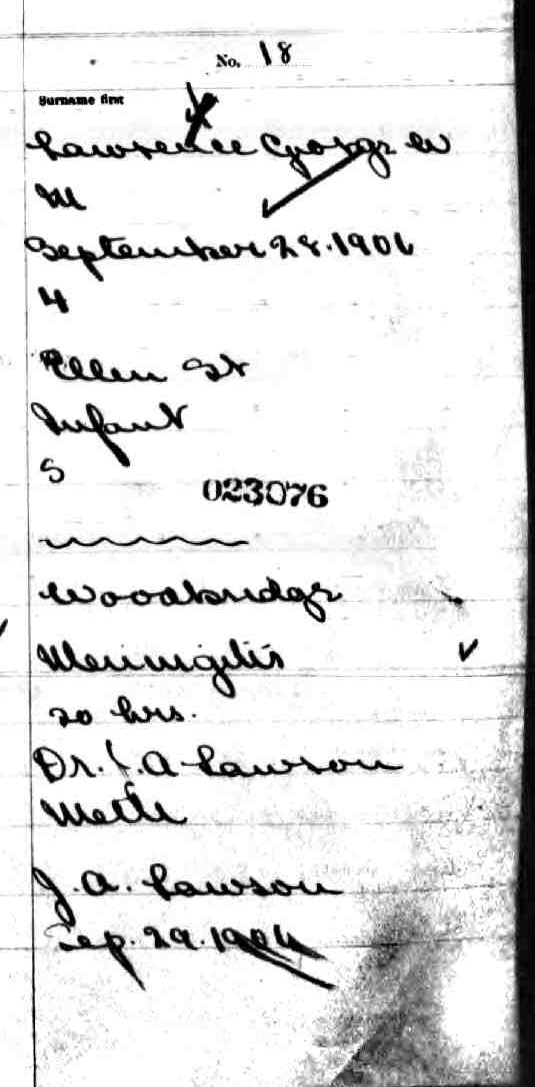 No. 18
Surname first
Lawrence George W
M
September 28.1906
4
Ellen St
Infant
S
023076
Woodbridge
Meningitis
20 hrs.
Dr. J. A Lawson
Meth
J. A. Lawson
Sep. 29. 1906